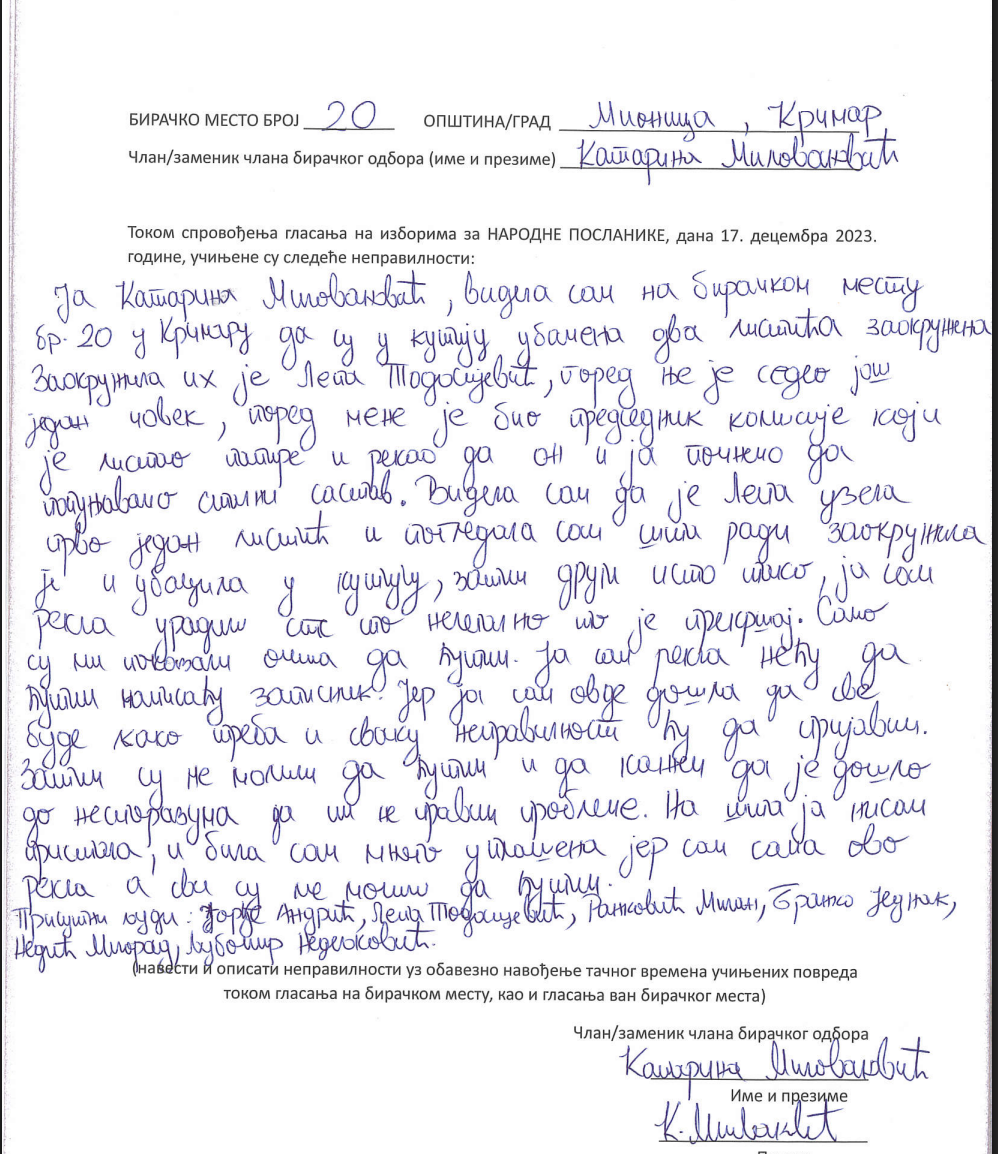 БИРАЧКО МЕСТО БРОЈ 20 ОПШТИНА/ГРАД Мионица, Кричар
Члан/заменик члана бирачког одбора (име и презиме) Катарина Миловановић
Током спровођења гласања на изборима за НАРОДНЕ ПОСЛАНИКЕ, дана 17. децембра 2023.
године, учињене су следеће неправилности:
Ја Катарина Миловановић, видела сам на бирачком месту
бр. 20 у Кричару да су у кутију убачена два листића заокружена
Заокружила их је Лепа Тодосијевић, поред ње је седео још
један човек, поред мене је био председник комисије који
је листао папире и рекао да он и ја почнемо да
попуњавамо стални састав. Видела сам да је Лепа узела
прво један листић и погледала сам шта ради заокружила
је и убацила у кутију, затим други исто тако, ја сам
рекла урадили сте то нелегално то је прекршај. Само
су ми показали очима да ћутим. Ја сам рекла нећу да
ћутим написаћу записник. Јер ја сам овде дошла да све
буде како треба и сваку неправилност ћу да пријавим.
Затим су ме молили да ћутим и да кажем да је дошло
до неспоразума да им не правим проблеме. На шта ја нисам
пристала, и била сам много уплашена јер сам сама ово
рекла а сви су ме молили да ћутим.
Присутни људи: Ђорђе Андрић, Лепа Тодосијевић, Ранковић Милан, Бранко Једнак,
Недић Милорад, Љубомир Недељковић.
(навести и описати неправилности уз обавезно навођење тачног времена учињених повреда
током гласања на бирачком месту, као и гласања ван бирачког места)
Члан/заменик члана бирачког одбора
Катарина Миловановић
Име и презиме
К. Мил